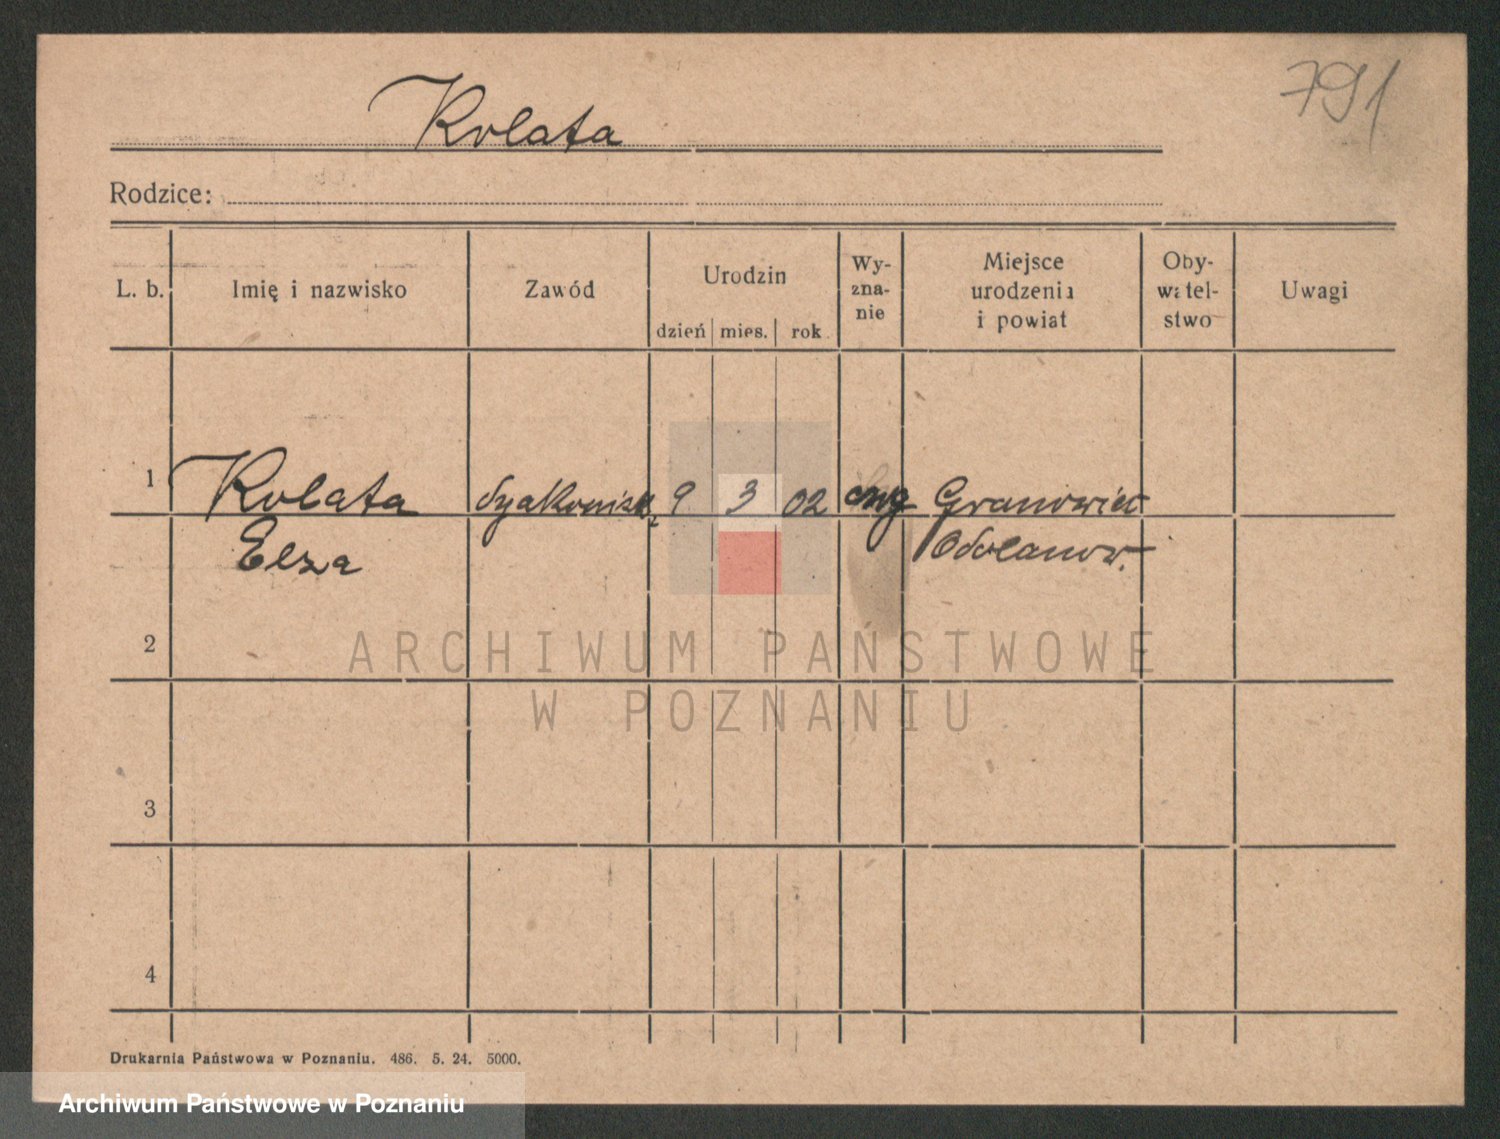 791
Kolata
Rodzice:
L. b.
Imię i nazwisko
Zawód
Urodzin
dzień mies. rok
Wy-
zna-
nie
Miejsce
urodzenia
i powiat
Oby-
watel-
stwo
Uwagi
1 Kolata 9 3 02 ewg Granowiec
Elza Odolanow.
2
3
4
ARCHIWUM PAŃSTWOWE
W POZNANIU
Drukarnia Państwowa w Poznaniu. 486. 5. 24. 5000.
Archiwum Państwowe w Poznaniu